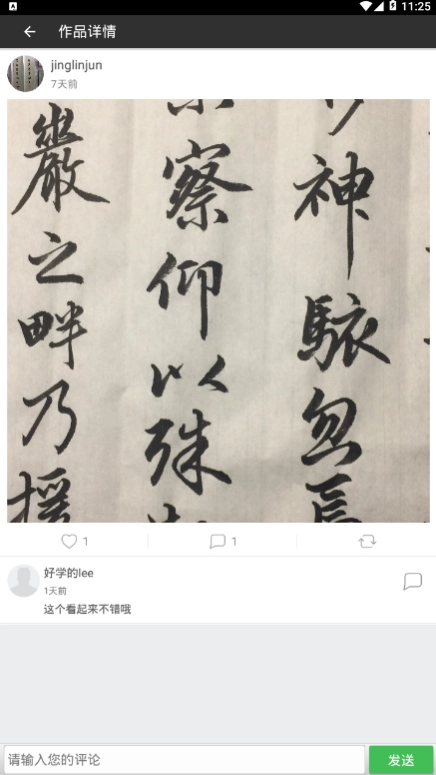 11:25
作品详情
jinglinjun
7天前
神駭忽焉
察仰以殊
巖之畔乃援
1
1
好学的lee
1天前
这个看起来不错哦
请输入您的评论
发送